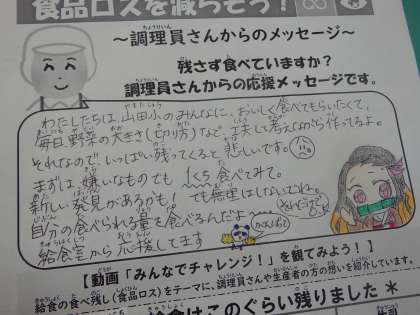 食品ロスを減らそう！
～調理員さんからのメッセージ～
残さず食べていますか？
調理員さんからの応援メッセージです。
わたしたちは、山田小のみんなに、おいしく食べてもらいたくて、
毎日、野菜の大きさ（切り方）など、工夫して考えながら作ってるよ。
それなので、いっぱい残ってくると悲しいです。
まずは、嫌いなものも 1くち食べてみて。
新しい発見があるかも！ でも無理はしないでね。
自分の食べられる量を食べるんだよ
給食室から応援してます
【動画「みんなでチャレンジ！」を観てみよう！】
給食の食べ残し（食品ロス）をテーマに、調理員さんや生産者の方の想いを紹介しています。
給食はこのぐらい残りました＊